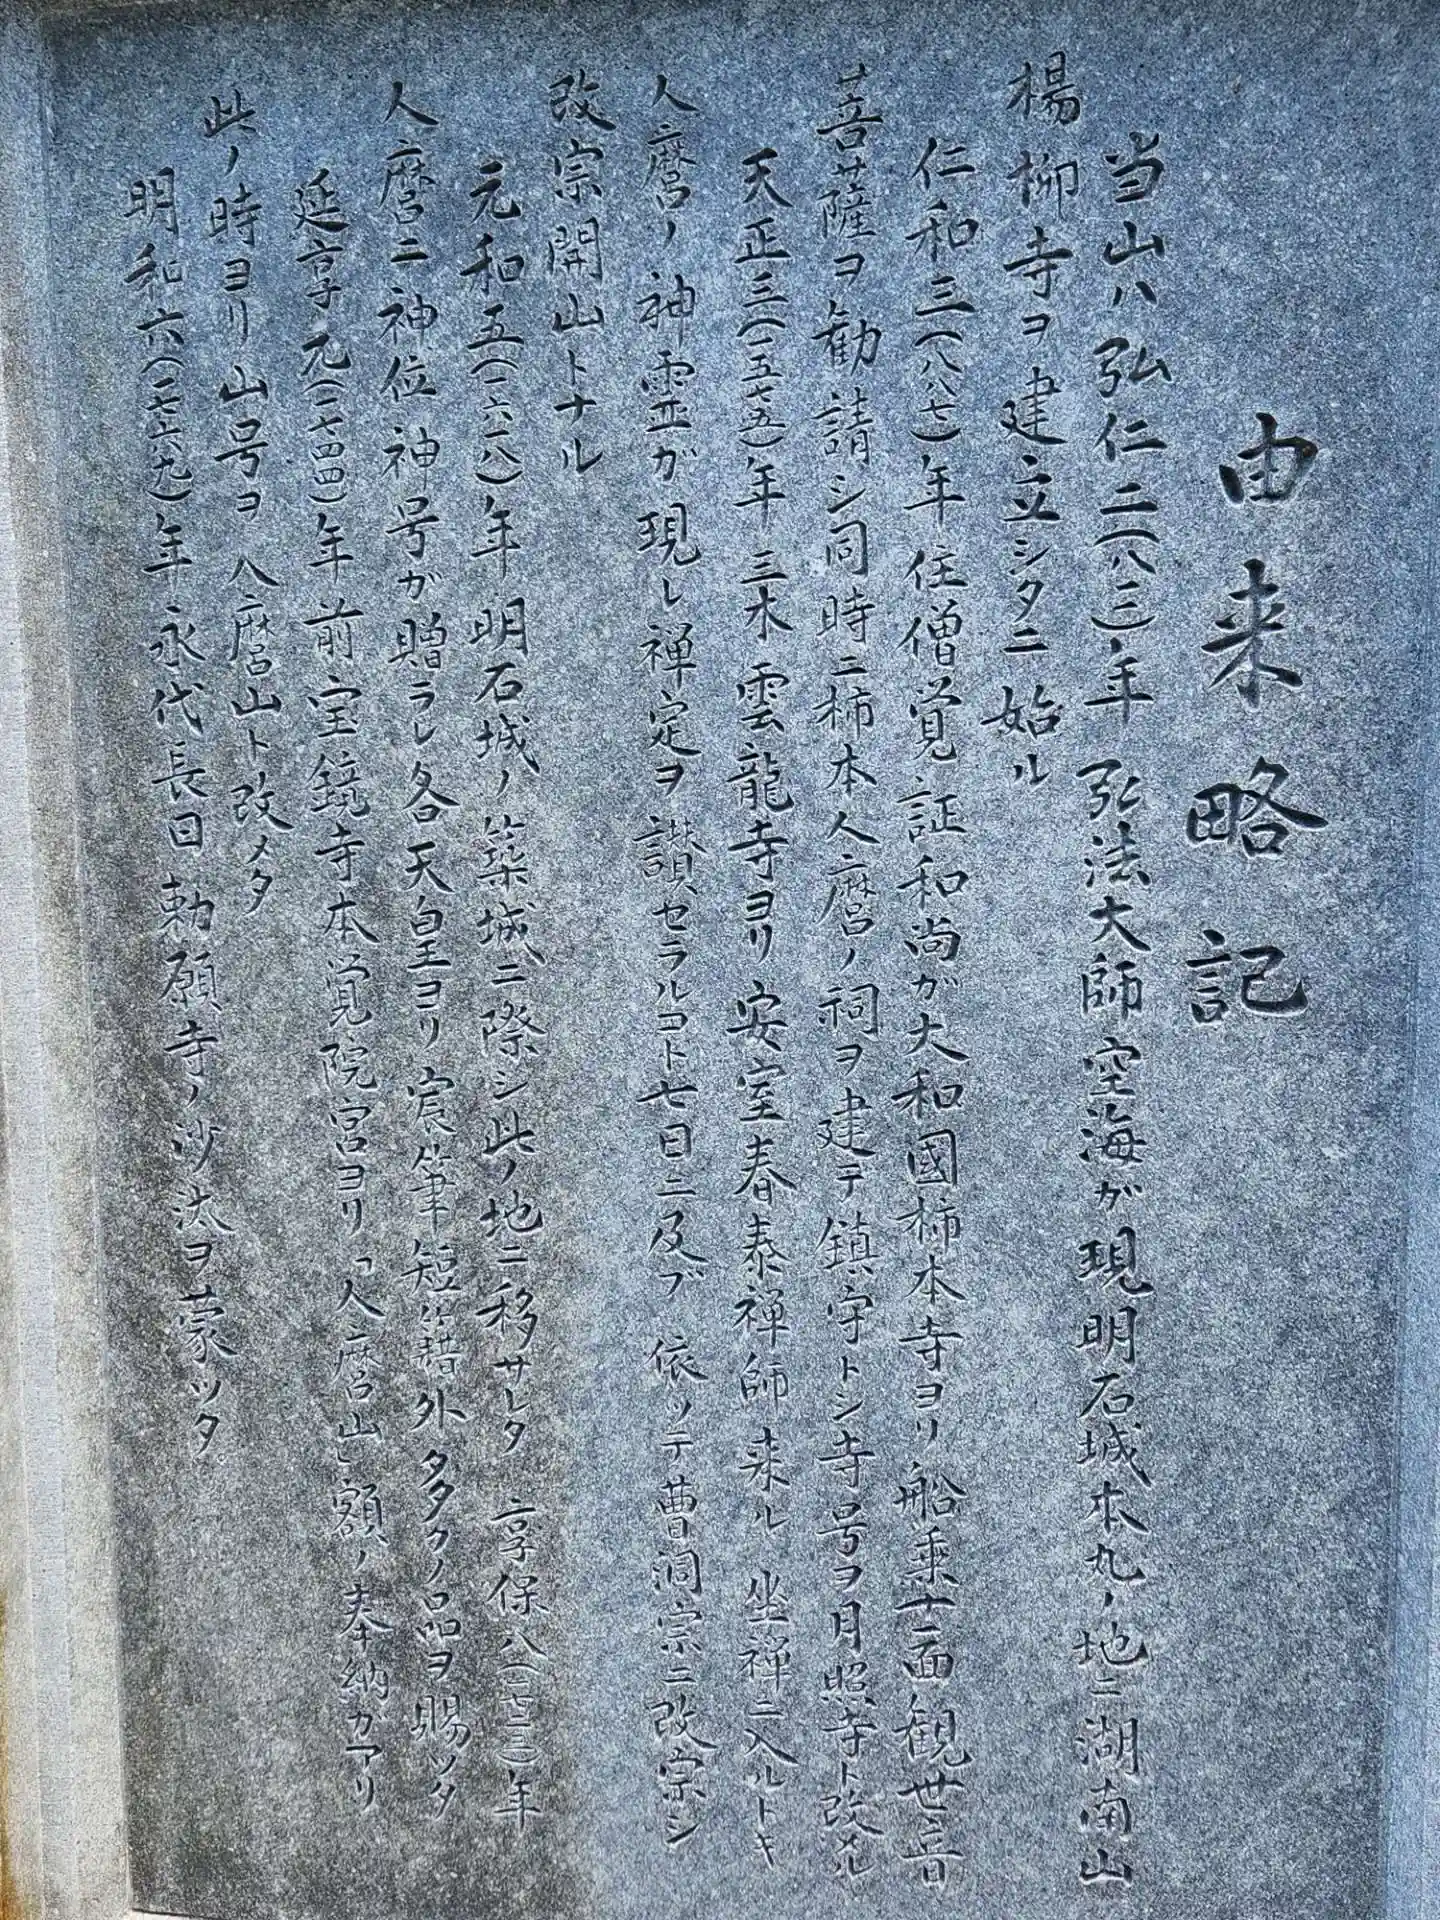 由来略記
当山ハ弘仁二(八一一)年 弘法大師空海ガ現明石城本丸ノ地ニ湖南山
楊柳寺ヲ建立シタニ始ル
仁和三(八八七)年住僧覚証和尚ガ大和國柿本寺ヨリ船乗十一面観世音
菩薩ヲ勧請シ同時ニ柿本人麿ノ祠ヲ建テ鎮守トシ寺号ヲ月照寺ト改メル
天正三(一五七五)年 三木雲龍寺ヨリ安室春泰禅師来ル 坐禅ニ入ルトキ
人麿ノ神霊ガ現レ禅定ヲ讃セラルコト七日ニ及ブ 依ッテ曹洞宗ニ改宗シ
改宗開山トナル
元和五(一六一八)年 明石城ノ築城ニ際シ此ノ地ニ移サレタ 享保八(一七二三)年
人麿ニ神位神号ガ贈ラレ各天皇ヨリ宸筆短籍外多クノ品ヲ賜ッタ
延享元(一七四四)年前宝鏡寺本覚院宮ヨリ「人麿山」額ノ奉納ガアリ
此ノ時ヨリ山号ヲ人麿山ト改メタ
明和六(一七六九)年永代長日勅願寺ノ沙汰ヲ蒙ッタ。